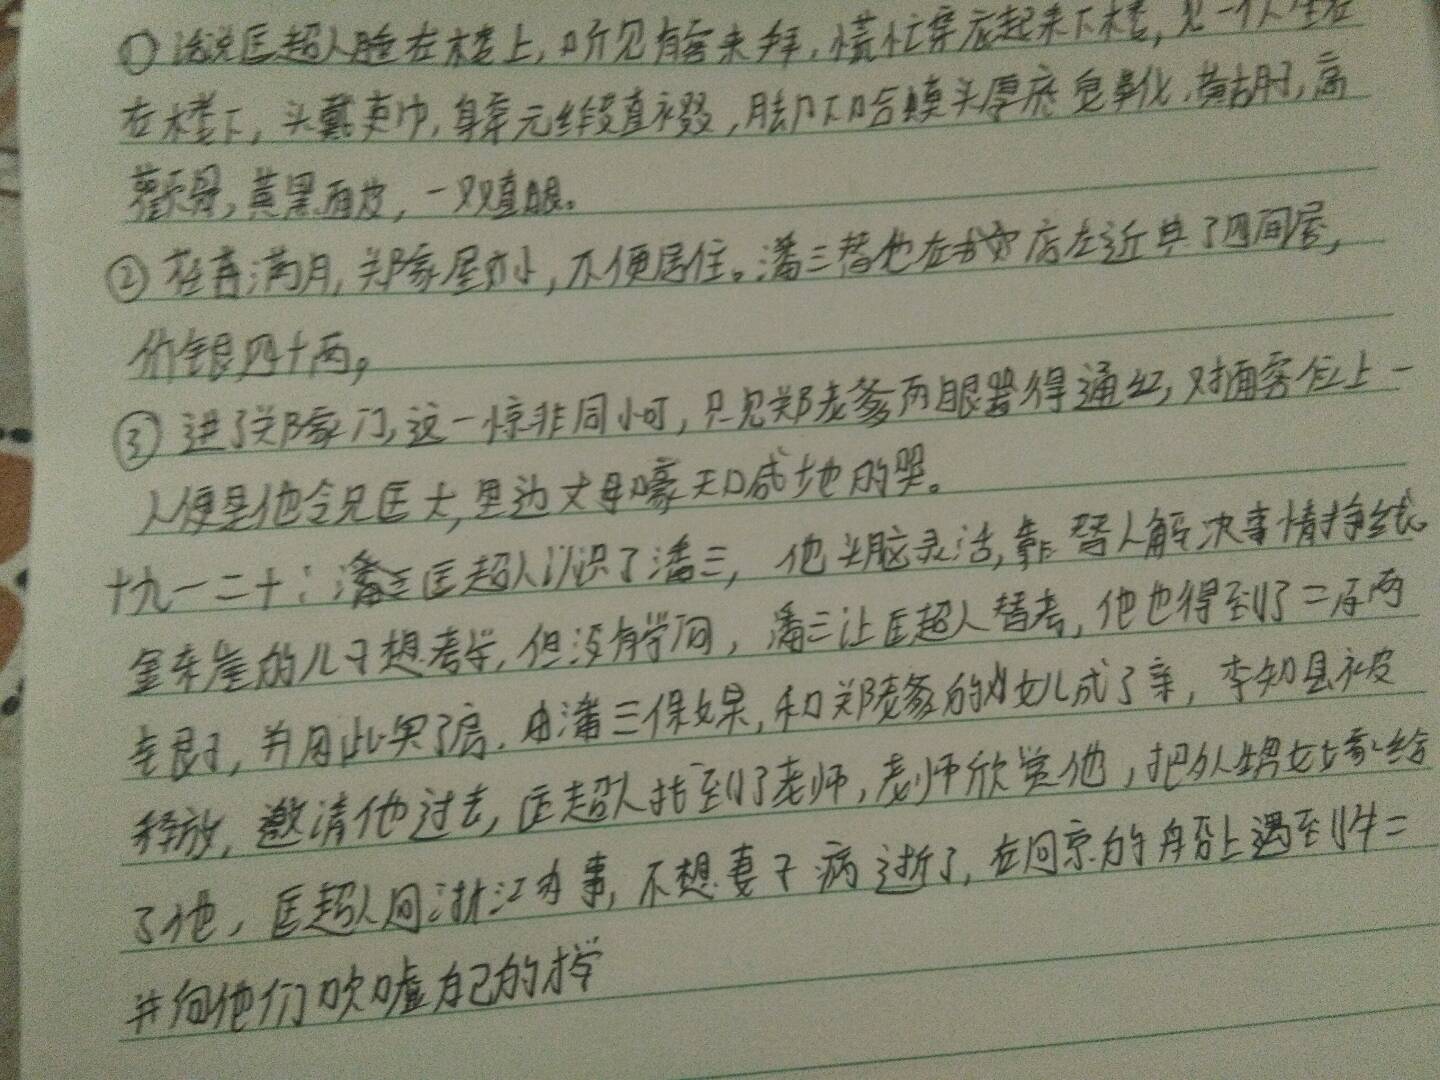 ①话说匡超人睡在楼上,听见有客来拜,慌忙穿衣起来下楼,见一个人坐在
在楼下,头戴吏巾,身穿元缎直裰,脚下哈蟆头厚底皂靴,黄胡子,高
颧骨,黄黑面皮,一双直眼。
②在 满月,郑家屋小,不便居住。潘三替他在书店左近典了四间屋,
价银四十两,
③进了郑家门,这一惊非同小可,只见郑老爹两眼哭得通红,对面客位上一
人便是他令兄匡大,里边丈母嚎天喊地的哭。
十九一二十:潘三匡超人认识了潘三,他头脑灵活,靠替人解决事情挣钱。
金东崖的儿子想考学,但没有学问,潘三让匡超人替考,他也得到了二百两
银子,并用此买了房.由潘三保媒,和郑老爹的女儿成了亲,李知县被
释放,邀请他过去,匡超人找到了老师,老师欣赏他,把外甥女嫁给
了他,匡超人回浙江办事,不想妻子病逝了,在回京的船上遇到牛二
并向他们吹嘘自己的才学